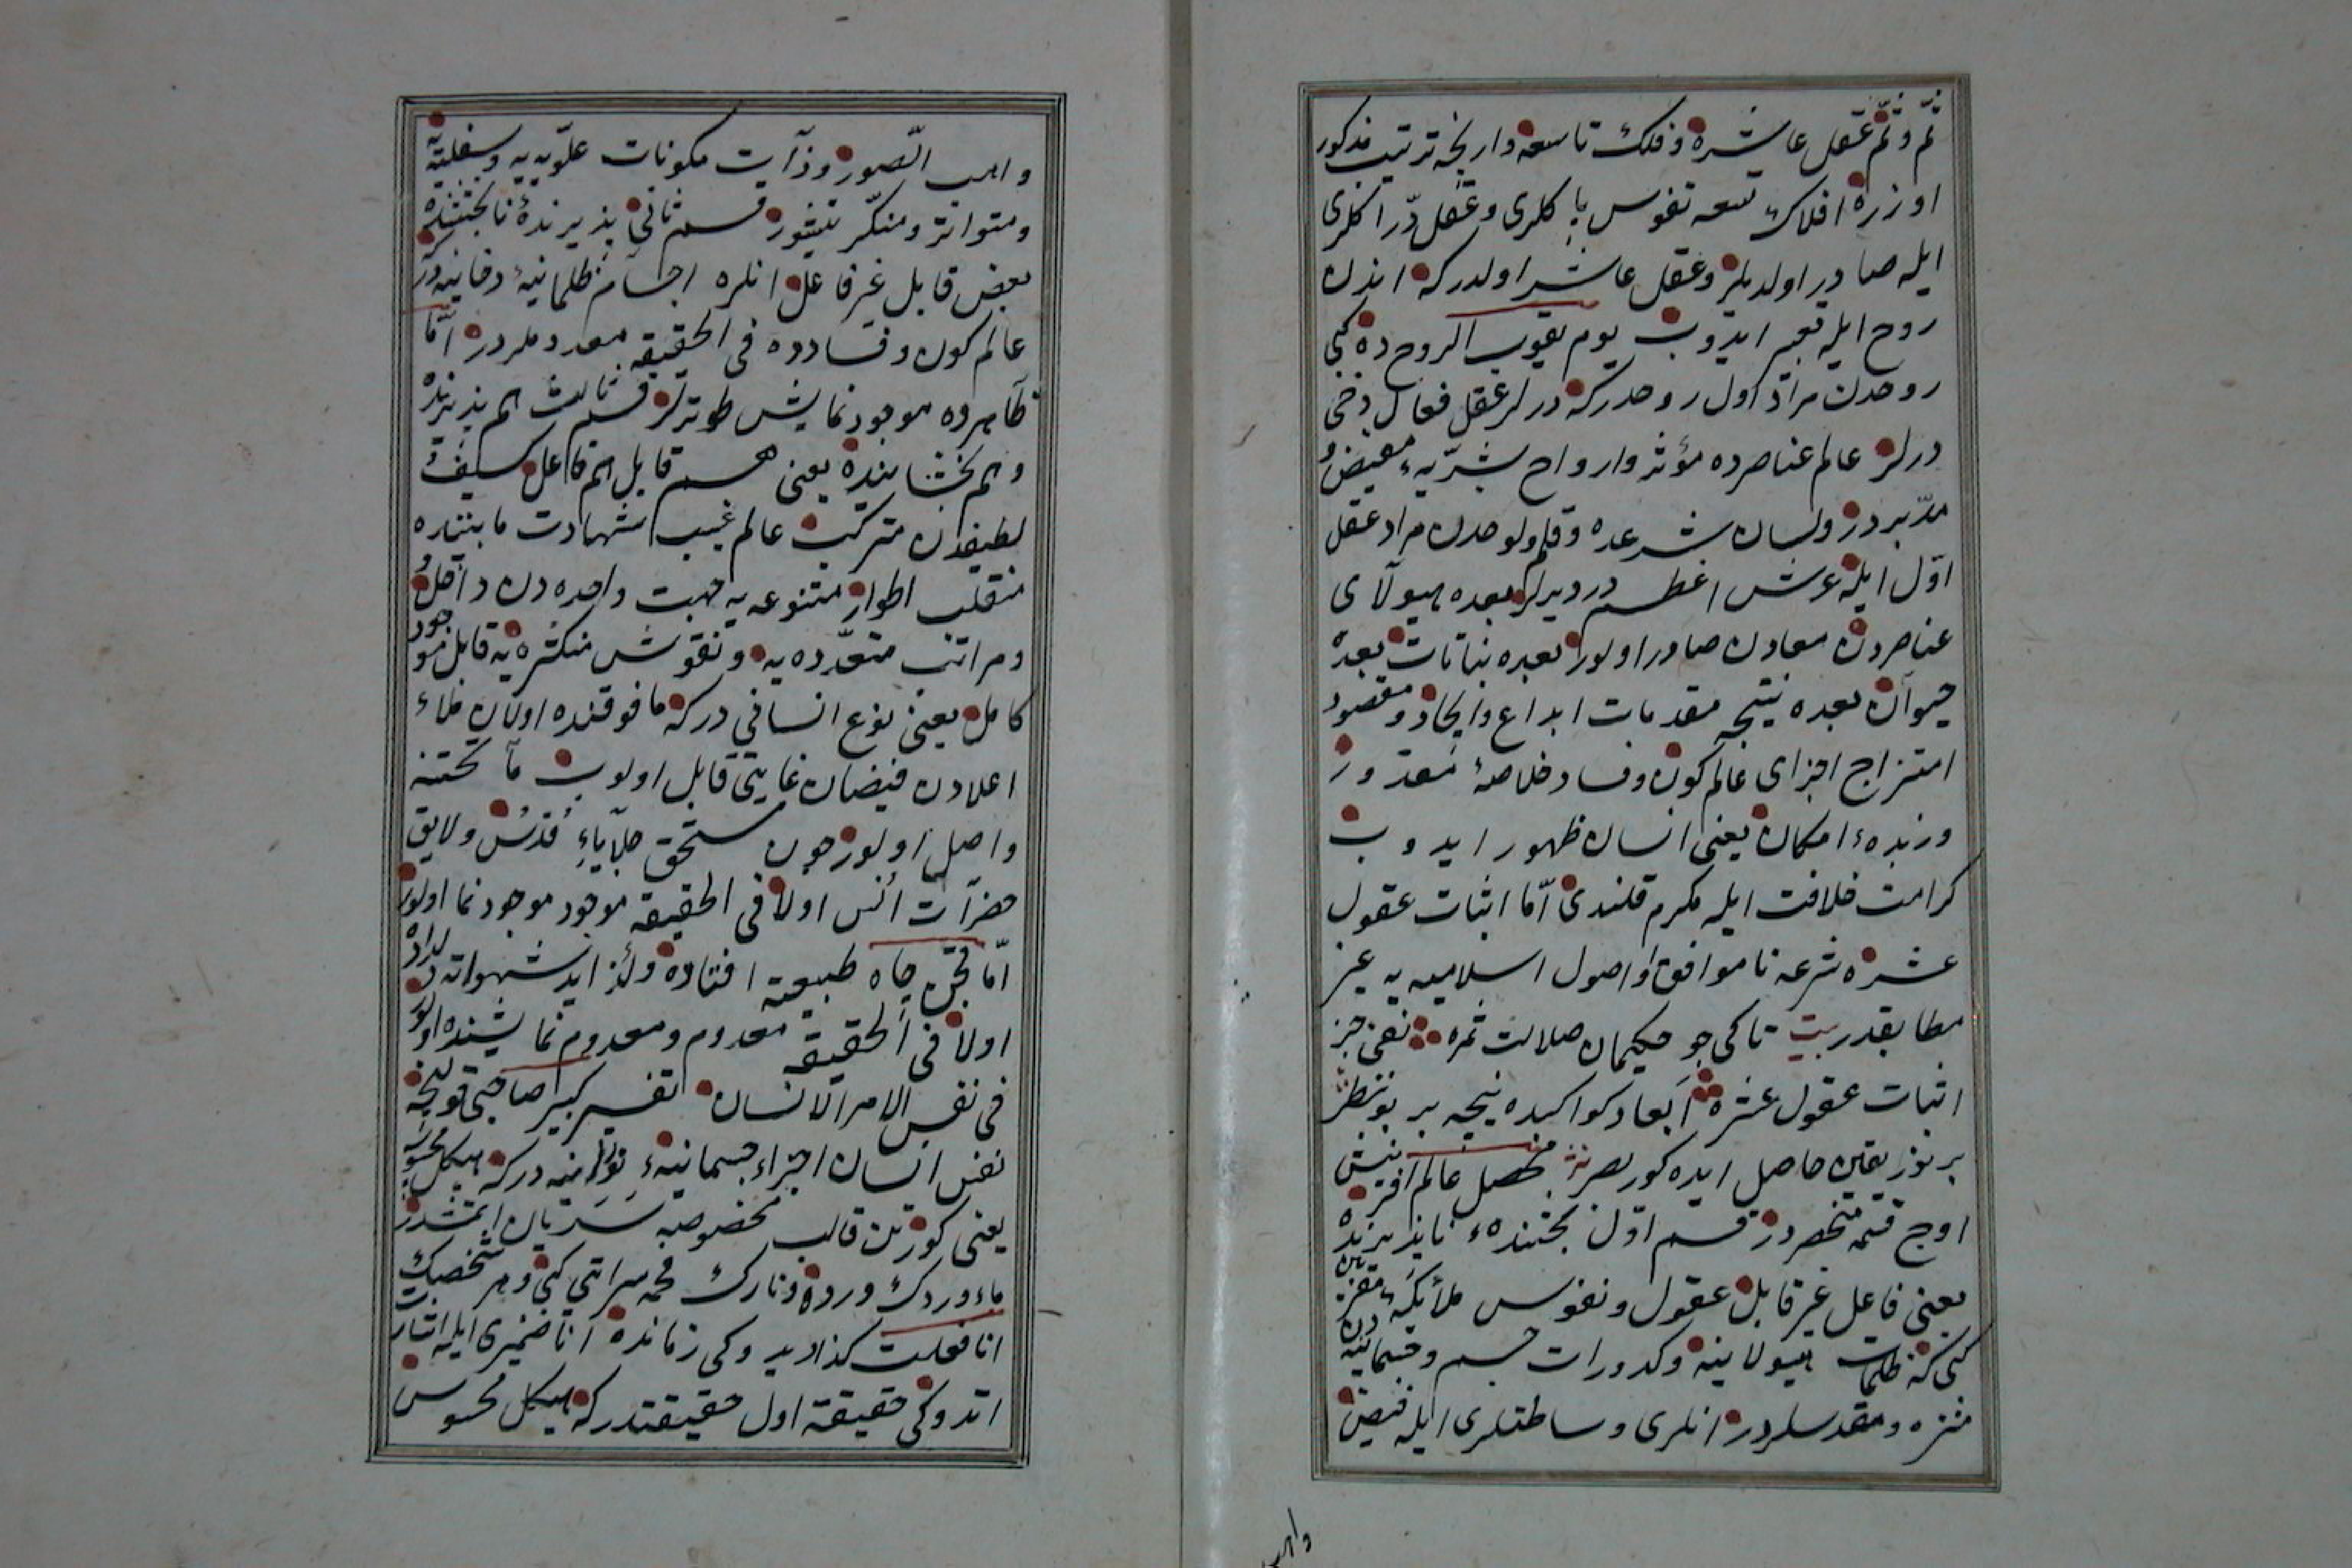 ثم و ثم عقل عاشره و فلك تاسعه وارنجه ترتيب مذكور
اوزره افلاك تسعه نفوس پاكلرى و عقل درّاكلرى
ايله صادر اولديلر و عقل عاشر اولدركه اندن
روح ايله تعبير ايدوب يوم يقوم الروح ده كبى
روحدن مراد اول روحدركه درلر عقل فعال دخى
درلر عالم عناصرده مؤثر و ارواح بشريه مفيض و
مدبردر و لسان شرعده و قلم و لوحدن مراد عقل
اوّل ايله عرش اعظم در ديرلر بعده هيولاى
عناصردن معادن صادر اولور بعده نباتات بعده
حيوان بعده نتيجه مقدمات ابداع و ايجاد و مقصود
امتزاج اجزاى عالم كون و فساد خلاصهٔ
و زبدهء امكان يعنى انسان ظهور ايدوب
كرامت خلافت ايله مكرم قلندى امّا اثبات عقول
عشره شرعه ناموافق و اصول اسلاميه يه غير
مطابقدر بيت تا كى جو حكيمان ضلالت ثمره نفى جز
اثبات عقول عشره ابعاد كواكبده نيجه بر بو نظر
بر نور يقين حاصل ايده كور بصره محصل عالم آفرينش
اوچ قسمه منحصردر قسم اوّل بخشندهء ناپذيرنده
يعنى فاعل غير قابل عقول و نفوس ملائكهء مقربين
كبى كه ظلمات هيولانيه و كدورات جسم و جسمانيه دن
منزه و مقدسلردر انلرى وساطتلرى ايله فيض
واهب
واهب الصور و ذرات مكونات علويه يه و سفليه يه
و متواتر و منتشردر قسم ثانى پذيرندهٔ نابخشنده
يعنى قابل غير فاعل انلره اجسام ظلمانيهٔ دخانيه در كه
عالم كون و فسادده فى الحقيقه معدوملردر امّا
ظاهرده موجود نمايش طوترلر قسم ثالث هم پذيرنده
و هم بخشاينده يعنى هم قابل هم فاعل كثيف و
لطيفدن متركب عالم غيب شهادت مابيننده
منقلب اطوار متنوعه يه جهت واحده دن داخل و
و مراتب متعدده يه و نقوش متكثره يه قابل موجود
كامل يعنى نوع انسانى در كه مافوقنده اولان ملاء
اعلادن فيضان غايتى قابل اولوب ما تحتنه
واصل اولور چون مستحق قدس و لايق
حضرات انس اولا فى الحقيقه موجود موجود نما اولور
امّا چاه طبيعته افتاده و لذايد شهواته دلداده
اولا فى الحقيقه معدوم و معدوم نما
فى نفس الامر الانسان تفسير كبير صاحبى قولنجه
نفس انسان اجزاء جسمانيهء نورانيه در كه هيكل محسوسه
يعنى كورينن قالب مخصوصه سريان ايتمشدر
ماء وردك ورده و نارك فحمه سرايتى كبى و هر شخصك
انا فعلت كذا ديدوكى زمانده انا ضميرى ايله اشارت
اتدوكى حقيقة اول حقيقتدر كه هيكل محسوس